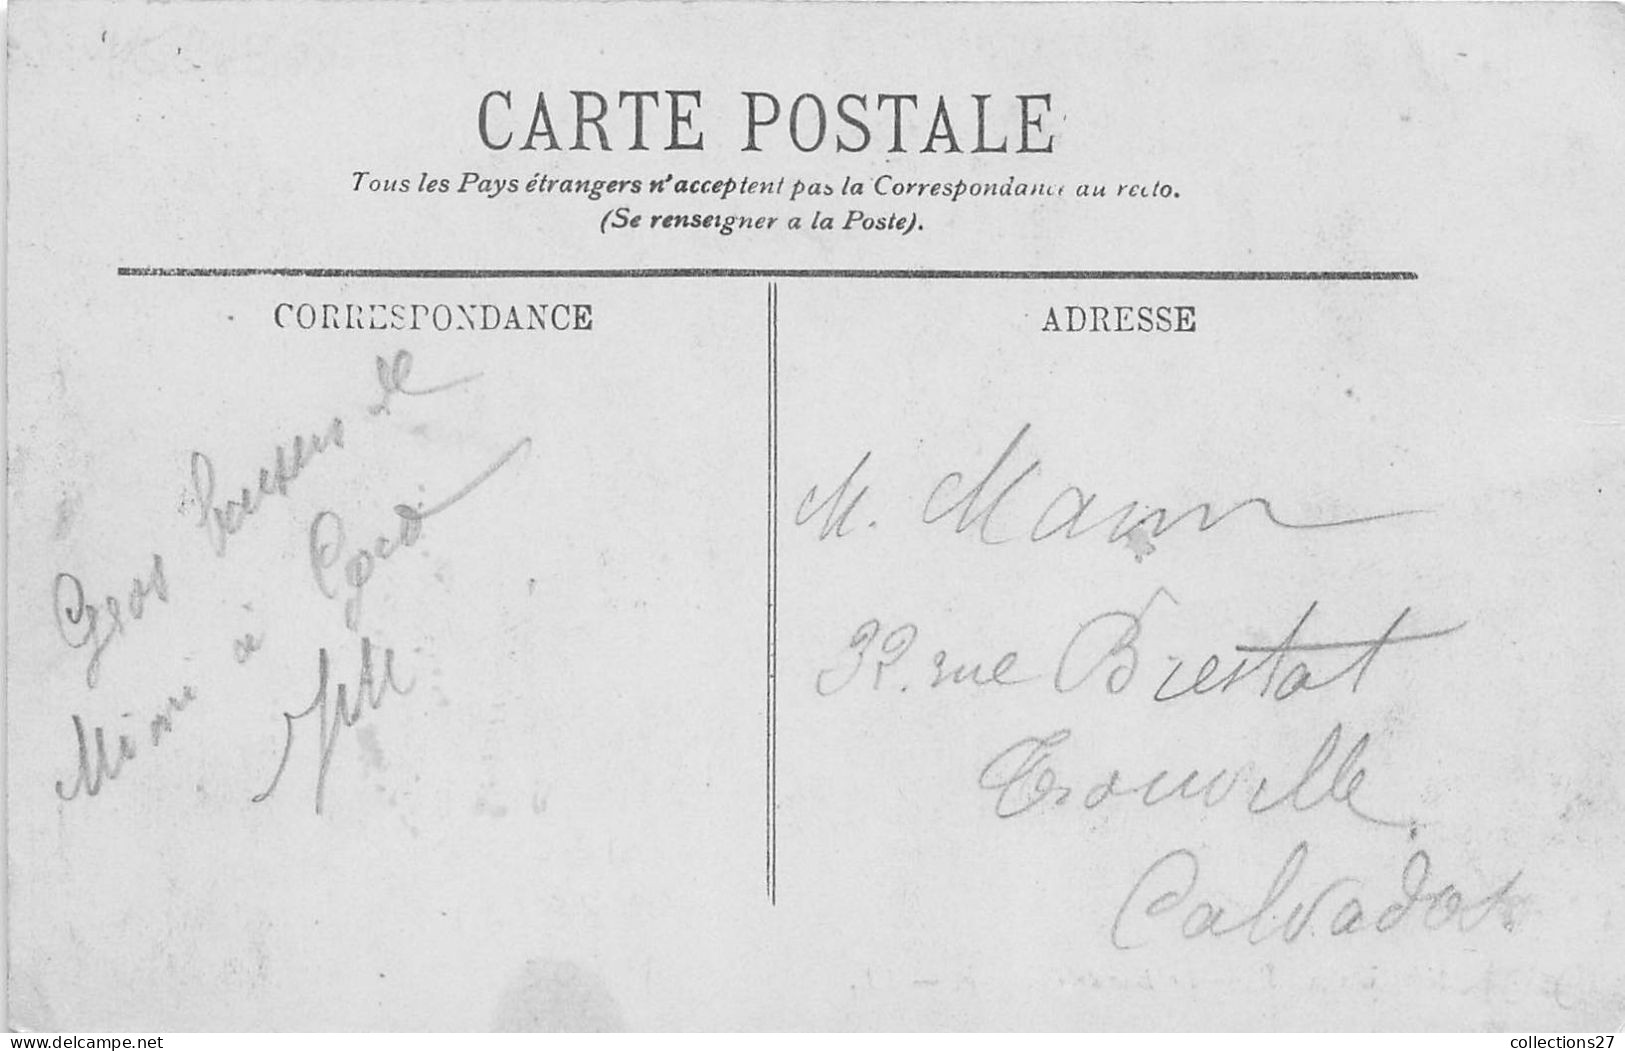 CARTE POSTALE
Tous les Pays étrangers n'acceptent pas la Correspondance au recto.
(Se renseigner a la Poste).
CORRESPONDANCE
ADRESSE
Gros baisers de
Mimi à
M. Mann
32. rue Brestat
Trouville
Calvados
www.delcampe.net
collections27